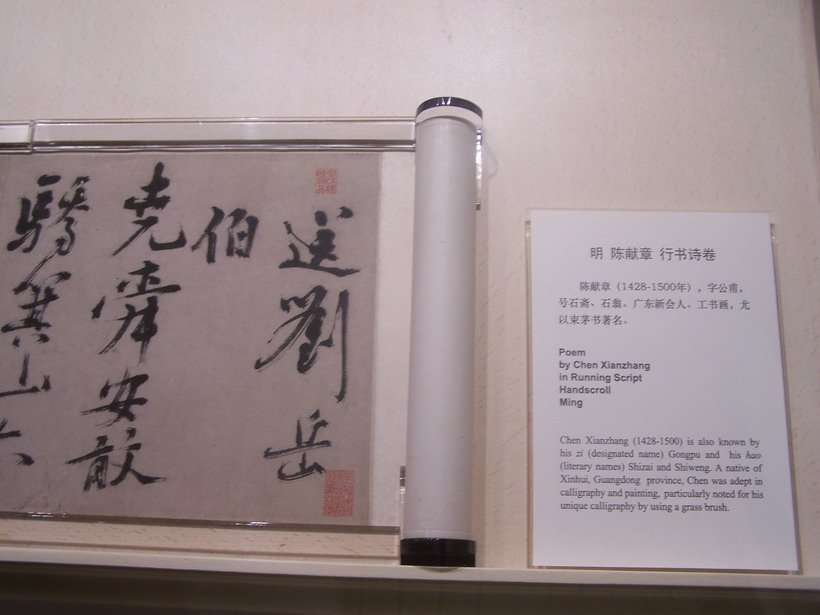 送劉岳
伯
堯舜安敢
驕箕山
明 陈献章 行书诗卷
陈献章（1428-1500年），字公甫，
号石斋、石翁。广东新会人。工书画，尤
以束茅书著名。
Poem
by Chen Xianzhang
in Running Script
Handscroll
Ming
Chen Xianzhang (1428-1500) is also known by
his zi (designated name) Gongpu and his hao
(literary names) Shizai and Shiweng. A native of
Xinhui, Guangdong province, Chen was adept in
calligraphy and painting, particularly noted for his
unique calligraphy by using a grass brush.